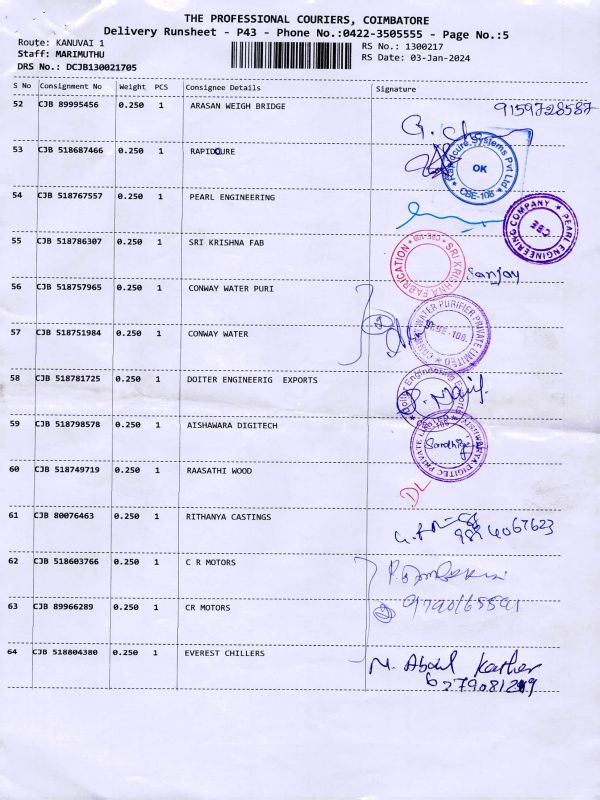 THE PROFESSIONAL COURIERS, COIMBATORE
Delivery Runsheet - P43 - Phone No.:0422-3505555 - Page No.:5
Route: KANUVAI 1
Staff: MARIMUTHU
DRS No.: DCJB130021705
RS No.: 1300217
RS Date: 03-Jan-2024
S No Consignment No Weight PCS Consignee Details Signature
52 CJB 89995456 0.250 1 ARASAN WEIGH BRIDGE 9159728587
53 CJB 518687466 0.250 1 RAPIDCURE
Rapidcure Systems Pvt Ltd OK CBE-108
54 CJB 518767557 0.250 1 PEARL ENGINEERING
PEARL ENGINEERING COMPANY CBE
55 CJB 518786307 0.250 1 SRI KRISHNA FAB
SRI KRISHNA FABRICATION Sanjay
56 CJB 518757965 0.250 1 CONWAY WATER PURI
WATER PURIFIER PRIVATE LIMITED CBE-108
57 CJB 518751984 0.250 1 CONWAY WATER
2
58 CJB 518781725 0.250 1 DOITER ENGINEERIG EXPORTS
Doiter Engineering
59 CJB 518798578 0.250 1 AISHAWARA DIGITECH
AISHWARYA DIGITEC PRIVATE LIMITED
60 CJB 518749719 0.250 1 RAASATHI WOOD
DL
61 CJB 80076463 0.250 1 RITHANYA CASTINGS
9894067623
62 CJB 518603766 0.250 1 C R MOTORS
63 CJB 89966289 0.250 1 CR MOTORS
2
64 CJB 518804380 0.250 1 EVEREST CHILLERS
M. Abdul Kather